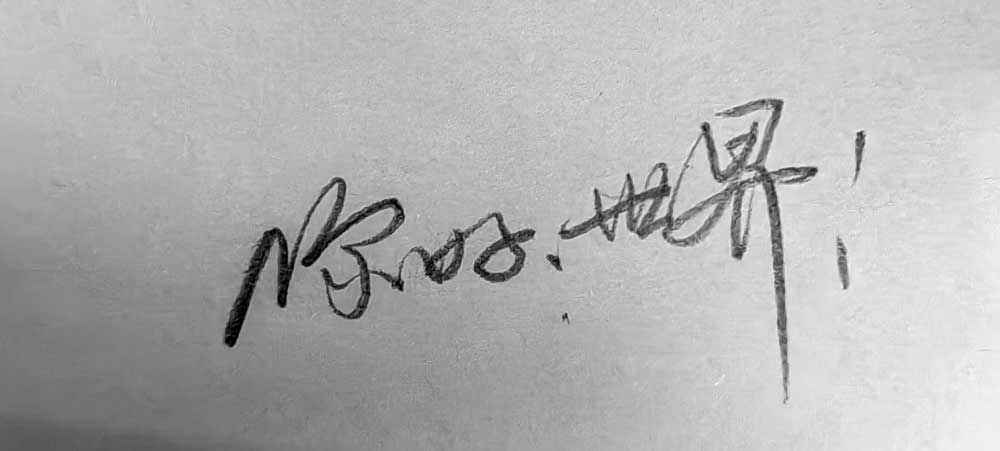 你好,世界!